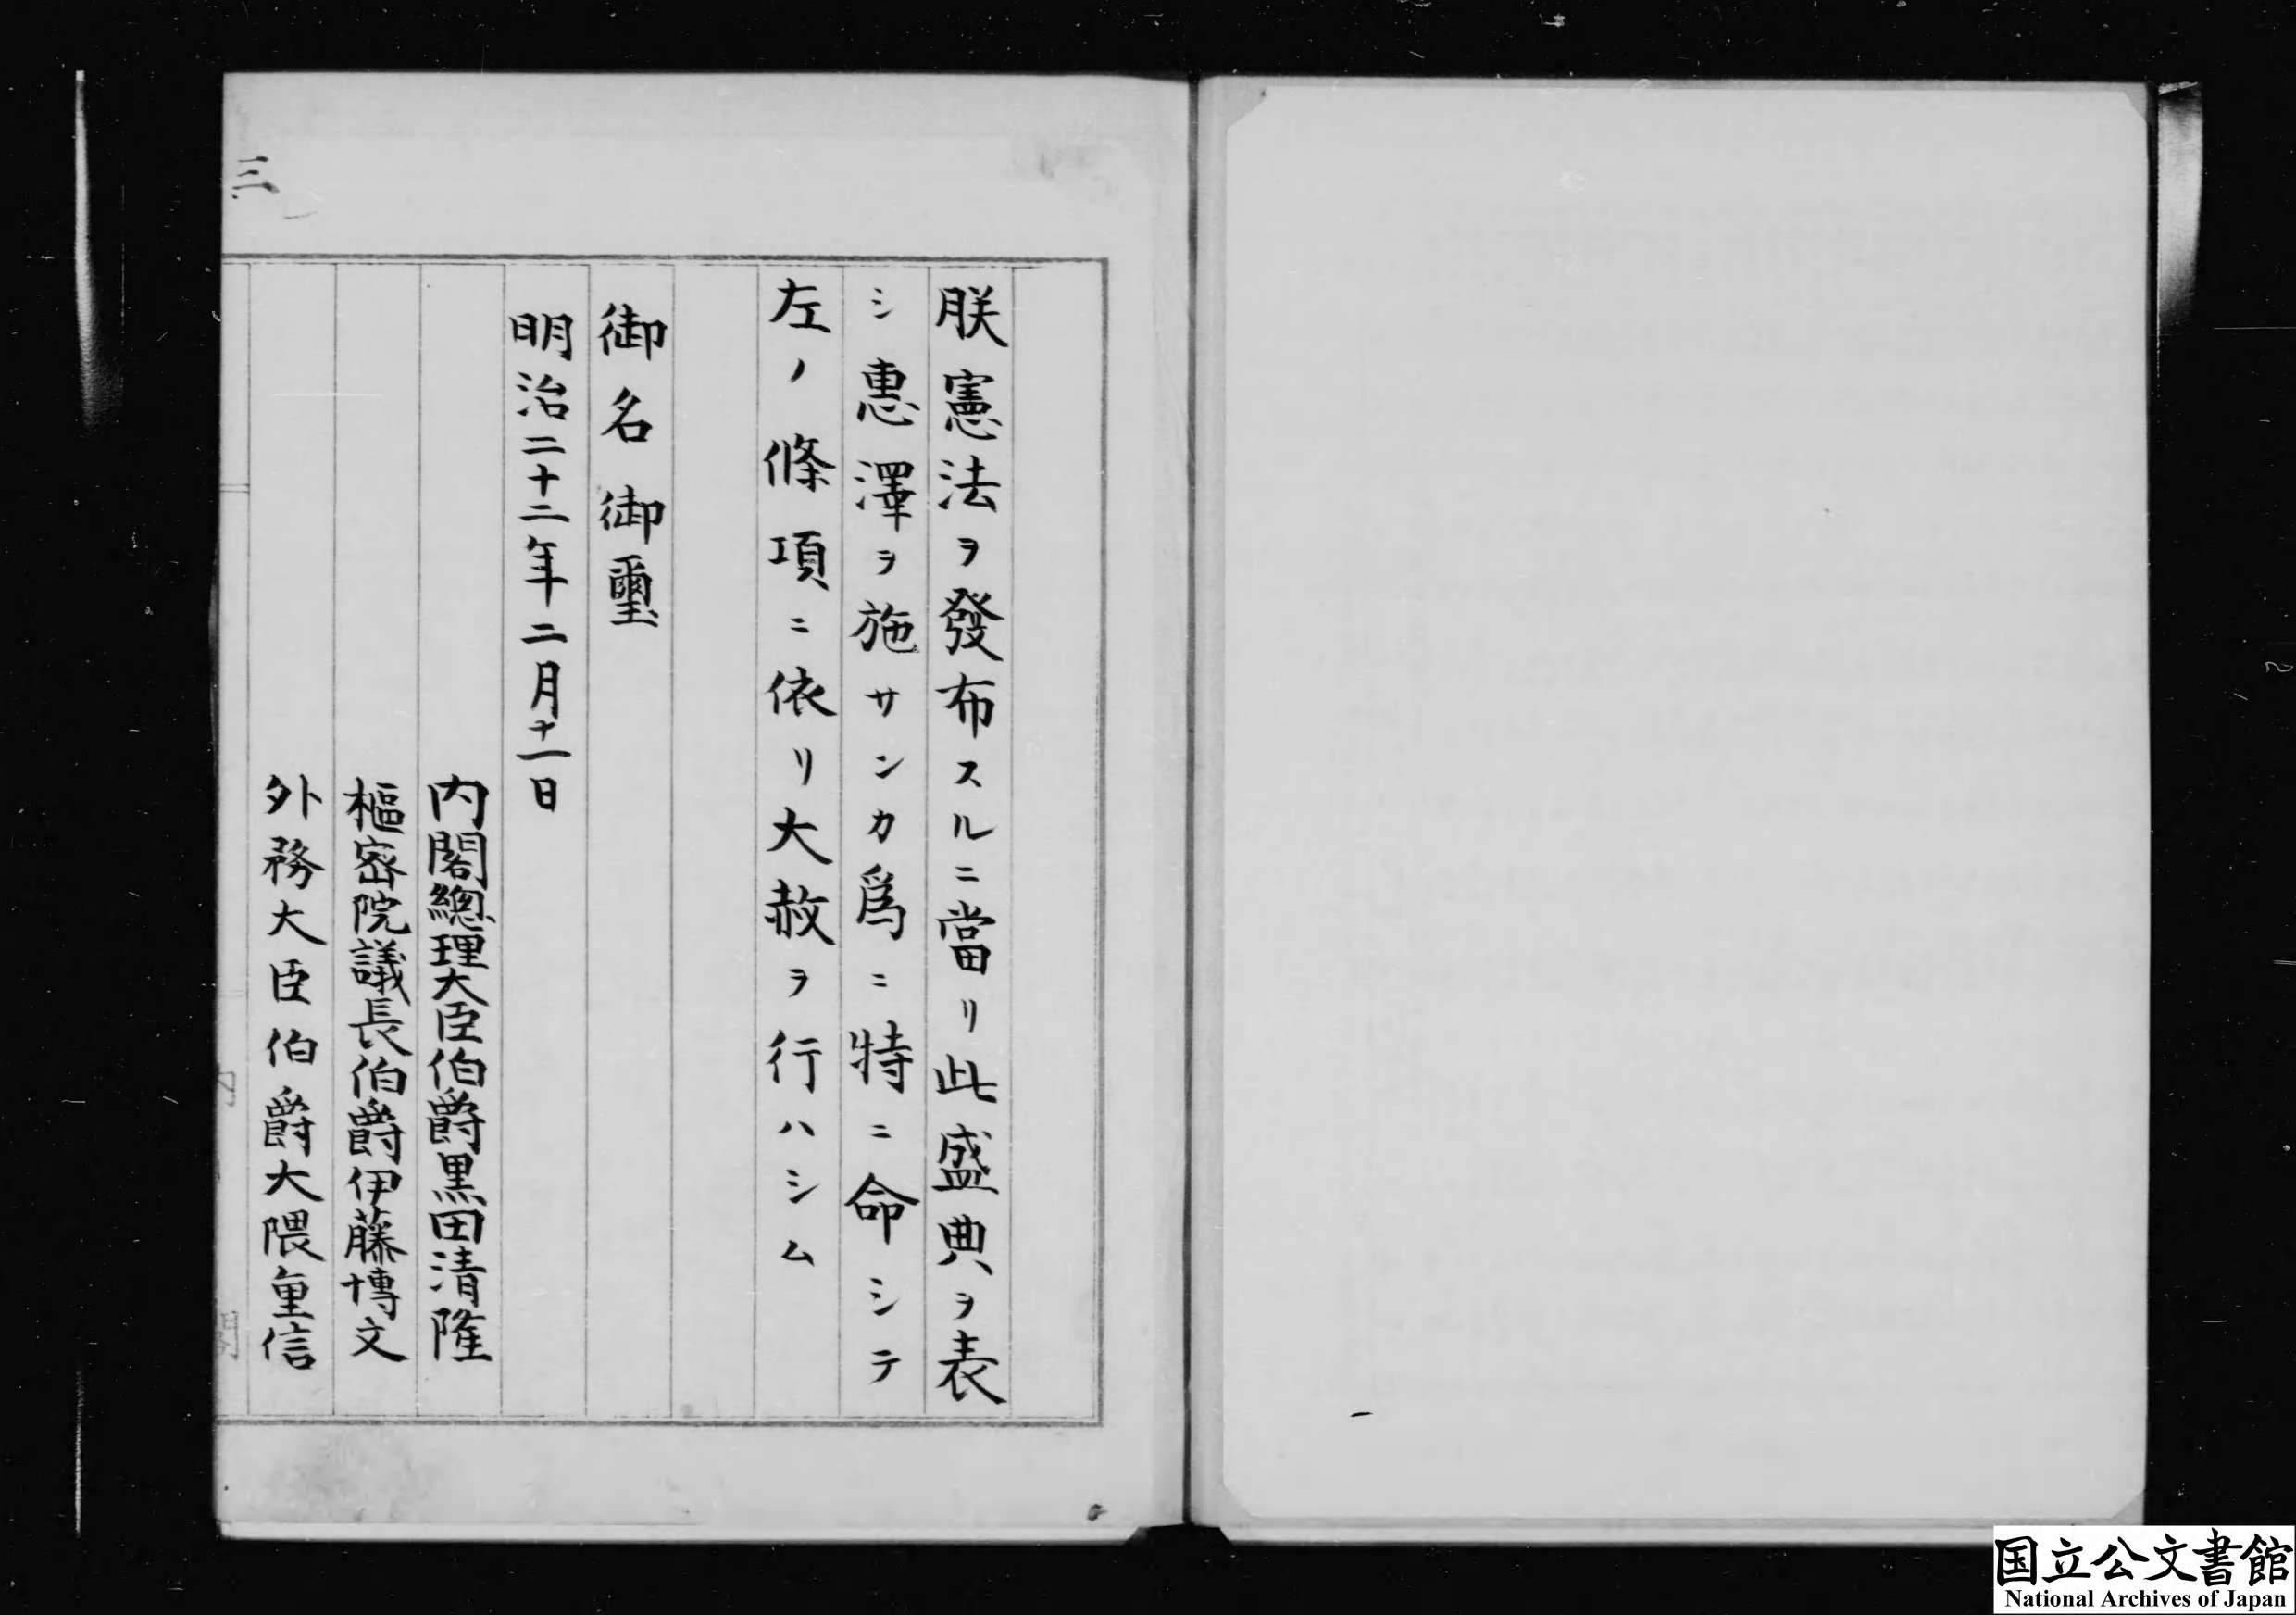 三
朕憲法ヲ發布スルニ當リ此盛典ヲ表
シ惠澤ヲ施サンカ爲ニ特ニ命シテ
左ノ條項ニ依リ大赦ヲ行ハシム
御名御璽
明治二十二年二月十一日
内閣總理大臣伯爵黒田清隆
樞密院議長伯爵伊藤博文
外務大臣伯爵大隈重信
国立公文書館
National Archives of Japan